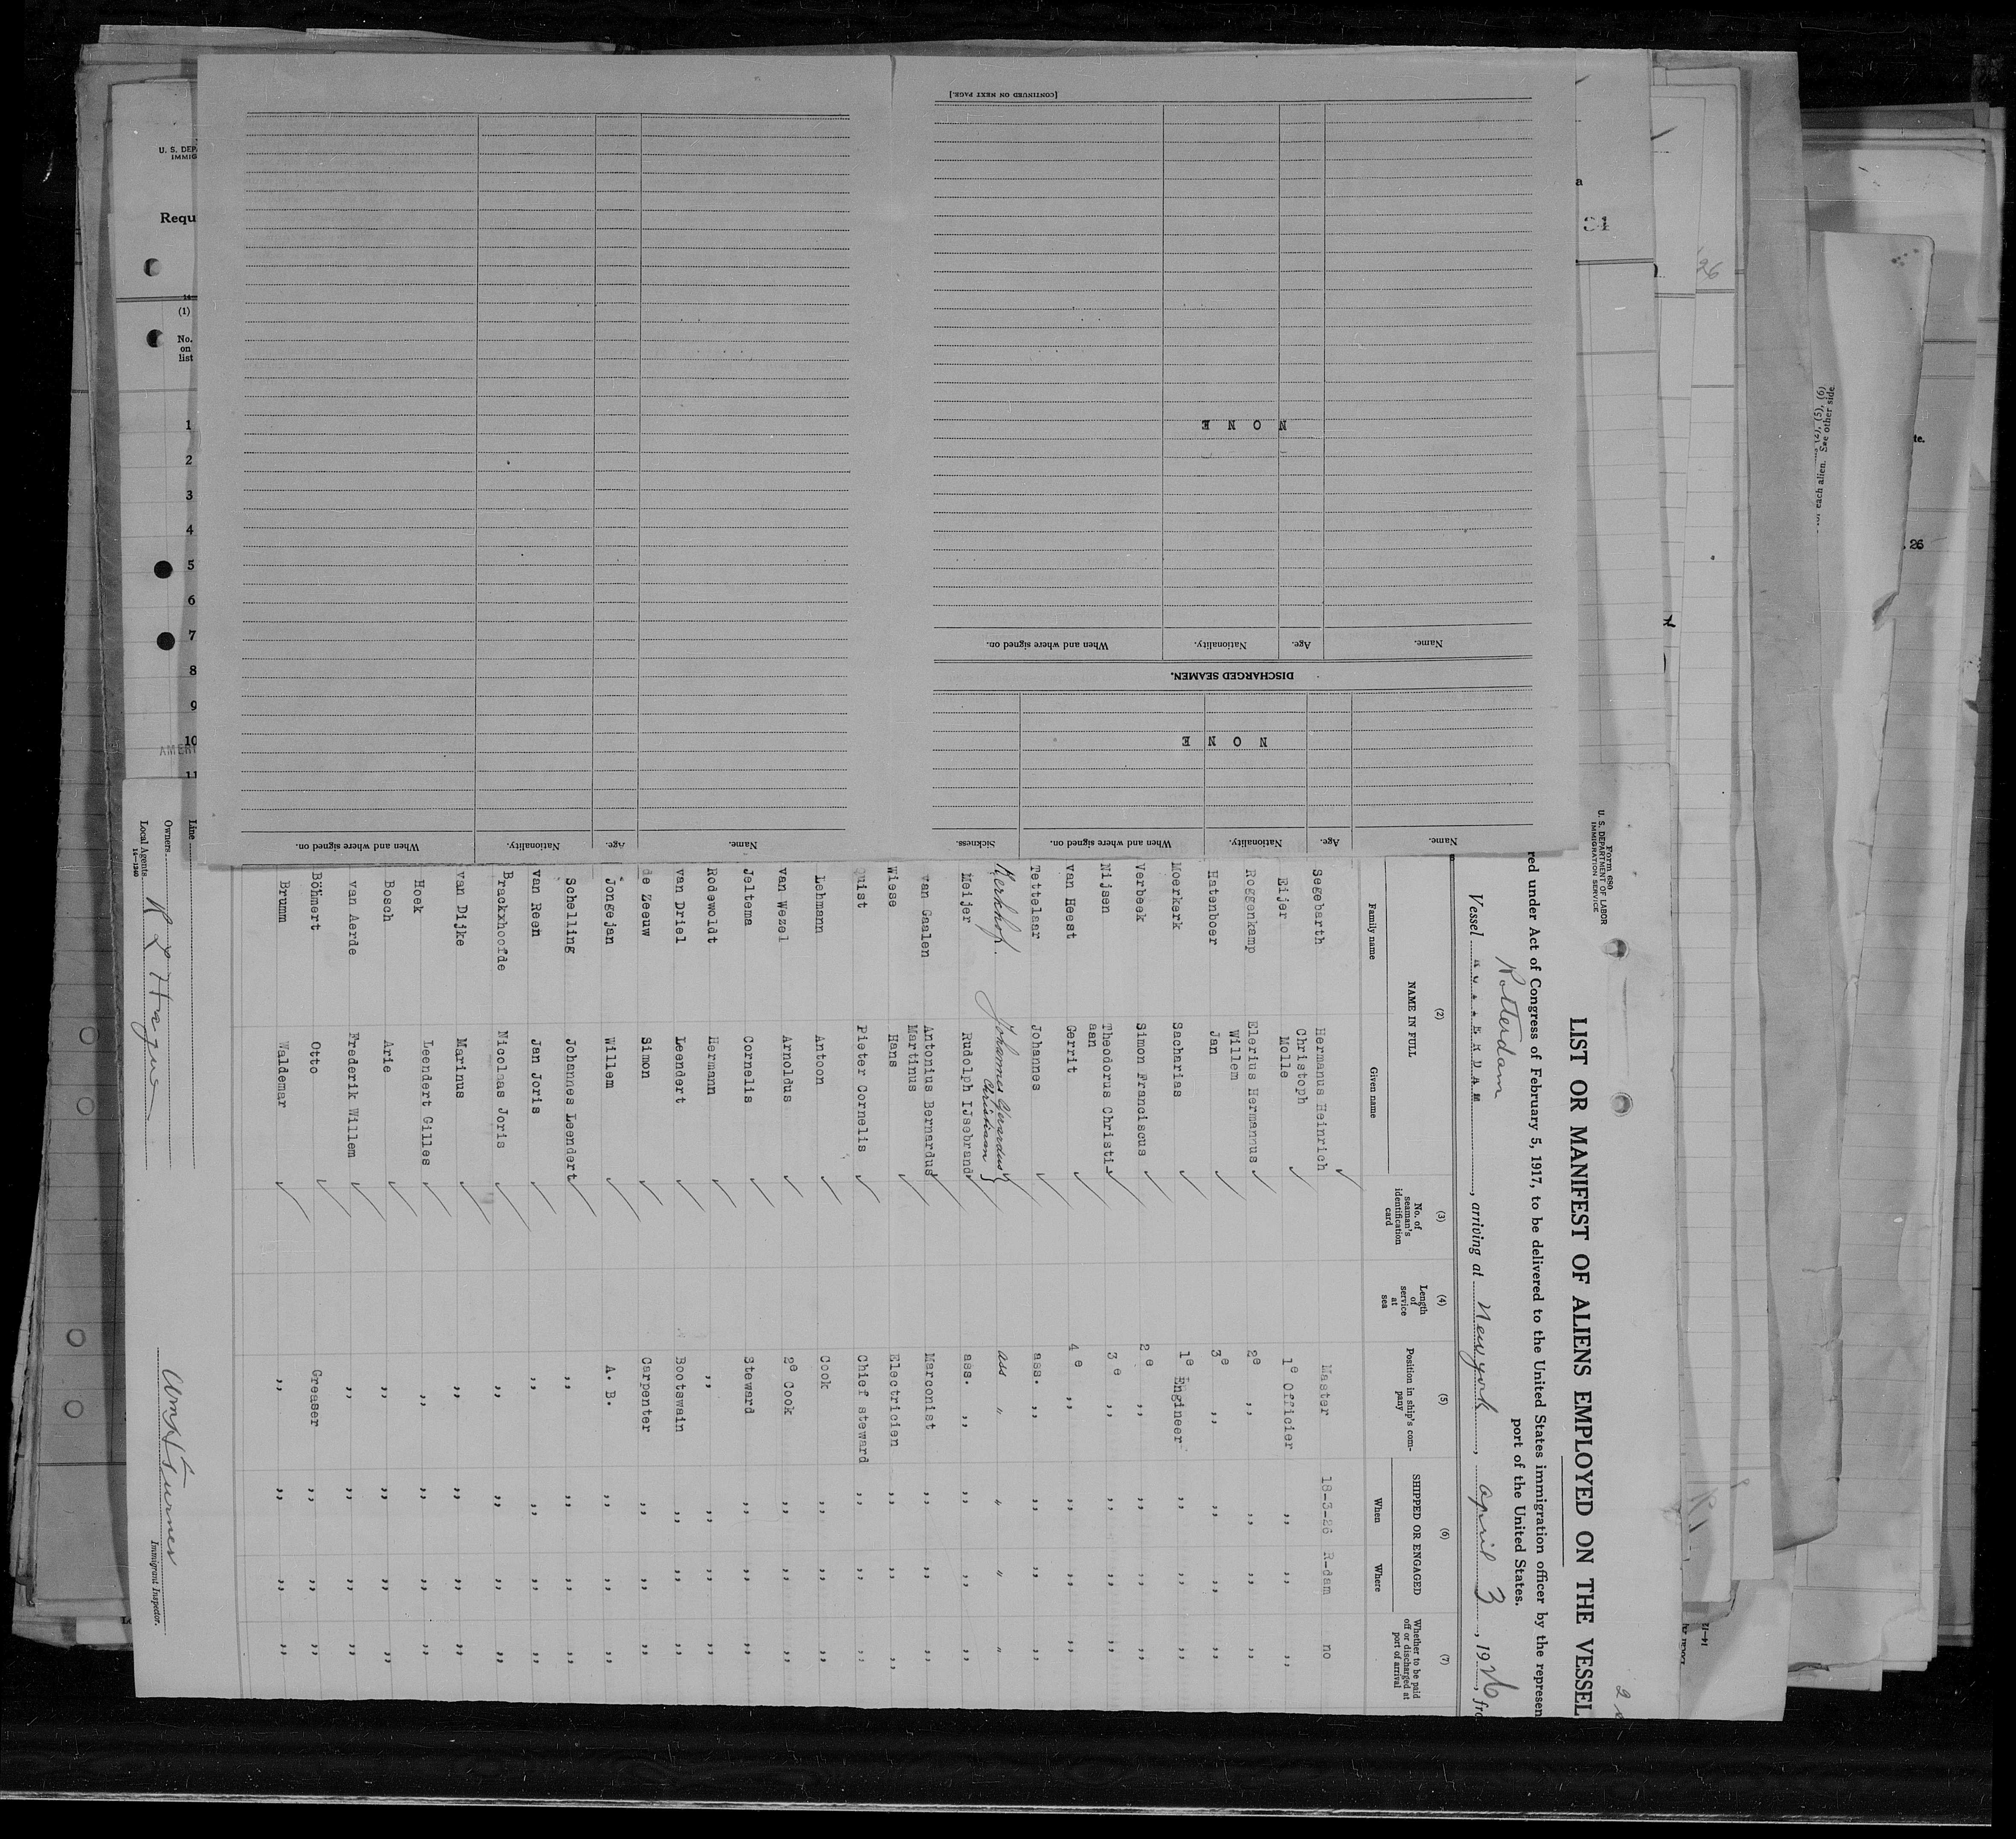 [CONTINUED ON NEXT PAGE.]
N O N E
Name. Age. Nationality. When and where signed on.
DISCHARGED SEAMEN.
N O N E
Name. Age. Nationality. When and where signed on. Sickness.
Name. Age. Nationality. When and where signed on.
U. S. DEP
IMMIG
Requ
14
(1)
No.
on
list
1
2
3
4
5
6
7
8
9
10
AMERI
11
26
te.
each alien. See other side
. 26
Form 680
U. S. DEPARTMENT OF LABOR
IMMIGRATION SERVICE
LIST OR MANIFEST OF ALIENS EMPLOYED ON THE VESSEL
red under Act of Congress of February 5, 1917, to be delivered to the United States immigration officer by the represen
port of the United States.
Rotterdam
Vessel , arriving at New york , april 3 , 1926, fro
(2) (3) (4) (5) (6) (7)
NAME IN FULL No. of seaman's identification card Length of service at sea Position in ship's company SHIPPED OR ENGAGED Whether to be paid off or discharged at port of arrival
Family name Given name When Where
Segebarth Hermanus Heinrich Christoph Master 18-3-26 R-dam no
Eijer Molle 1e Officier ,, ,, ,,
Roggenkamp Elerius Hermannus Willem 2e ,, ,, ,, ,,
Hatenboer Jan 3e ,, ,, ,, ,,
Moerkerk Sacharias 1e Engineer ,, ,, ,,
Verbeek Simon Franciscus 2e ,, ,, ,, ,,
Nijsen Theodorus Christiaan 3e ,, ,, ,, ,,
van Heest Gerrit 4e ,, ,, ,, ,,
Tettelaar Johannes ass. ,, ,, ,, ,,
Kerkhof. Johannes Gerardus Christiaan ass " " " "
Meijer Rudolph IJsebrand ass. ,, ,, ,, ,,
van Gaalen Antonius Bernardus Martinus Marconist ,, ,, ,,
Wiese Hans Electricien ,, ,, ,,
Quist Pieter Cornelis Chief steward ,, ,, ,,
Lehmann Antoon Cook ,, ,, ,,
van Wezel Arnoldus 2e Cook ,, ,, ,,
Jeltema Cornelis Steward ,, ,, ,,
Rodewoldt Hermann ,, ,, ,, ,,
van Driel Leendert Bootswain ,, ,, ,,
de Zeeuw Simon Carpenter ,, ,, ,,
Jongejan Willem A. B. ,, ,, ,,
Schelling Johannes Leendert ,, ,, ,, ,,
van Reen Jan Joris ,, ,, ,, ,,
Brackxhoofde Nicolaas Joris ,, ,, ,, ,,
van Dijke Marinus ,, ,, ,, ,,
Hoek Leendert Gilles ,, ,, ,, ,,
Bosch Arie ,, ,, ,, ,,
van Aerde Frederik Willem ,, ,, ,, ,,
Böhmert Otto Greaser ,, ,, ,,
Brumm Waldemar ,, ,, ,, ,,
Line
Owners
Local Agents R L Hague
14—1240
Immigrant Inspector.